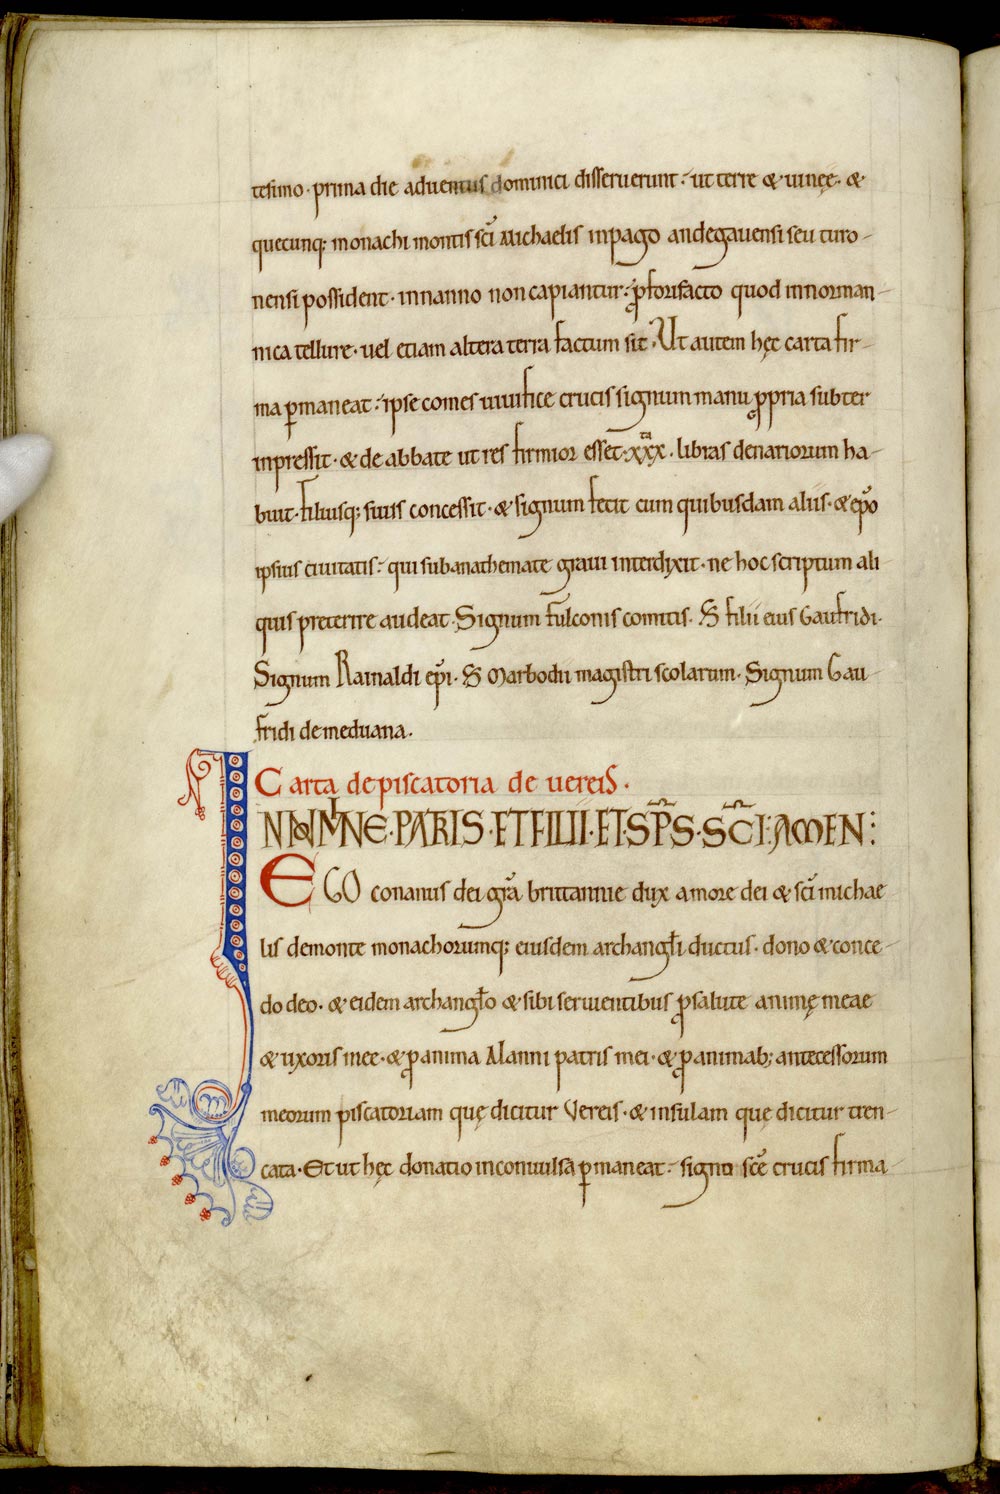 tesimo · prima die aduentus dominici disseruerunt : ut terre & uinęę · &
quecunq; monachi montis sc̄i Michaelis inpago andegauensi seu turo-
nensi possident · innanno non capiantur : ꝓ forifacto quod innorman-
nica tellure · uel etiam altera terra factum sit · Ut autem hęc carta fir-
ma ꝑmaneat : ipse comes uiuifice crucis signum manu ꝓpria subter
inpressit · & de abbate ut res firmior esset · xxx · libras denariorum ha-
buit · filiusq; suus concessit · & signum fecit cum quibusdam aliis · & ep̄o
ipsius ciuitatis : qui subanathemate graui interdixit · ne hoc scriptum ali
quis preterire audeat · Signum fulconis comitis · S filii eius Gaufridi ·
Signum Rainaldi ep̄i · S Marbodii magistri scolarum · Signum Gau-
fridi de meduana .
Carta de piscatoria de uereis .
IN NOMINE · PATRIS · ET FILII · ET · SP̄S · SC̄I : AMEN :
EGO conanus dei gr̄a brittannie dux amore dei & sc̄i michae-
lis demonte monachorumq; eiusdem archangl̄i ductus · dono & conce-
do deo · & eidem archangl̄o & sibi seruientibus ꝓ salute animę meae
& uxoris mee · & ꝓ anima Alanni patris mei · & ꝓ animab; antecessorum
meorum piscatoriam quę dicitur Vereis · & insulam quę dicitur tren-
cata · Et ut hęc donatio inconuulsa ꝑmaneat : signo sc̄e crucis firma-